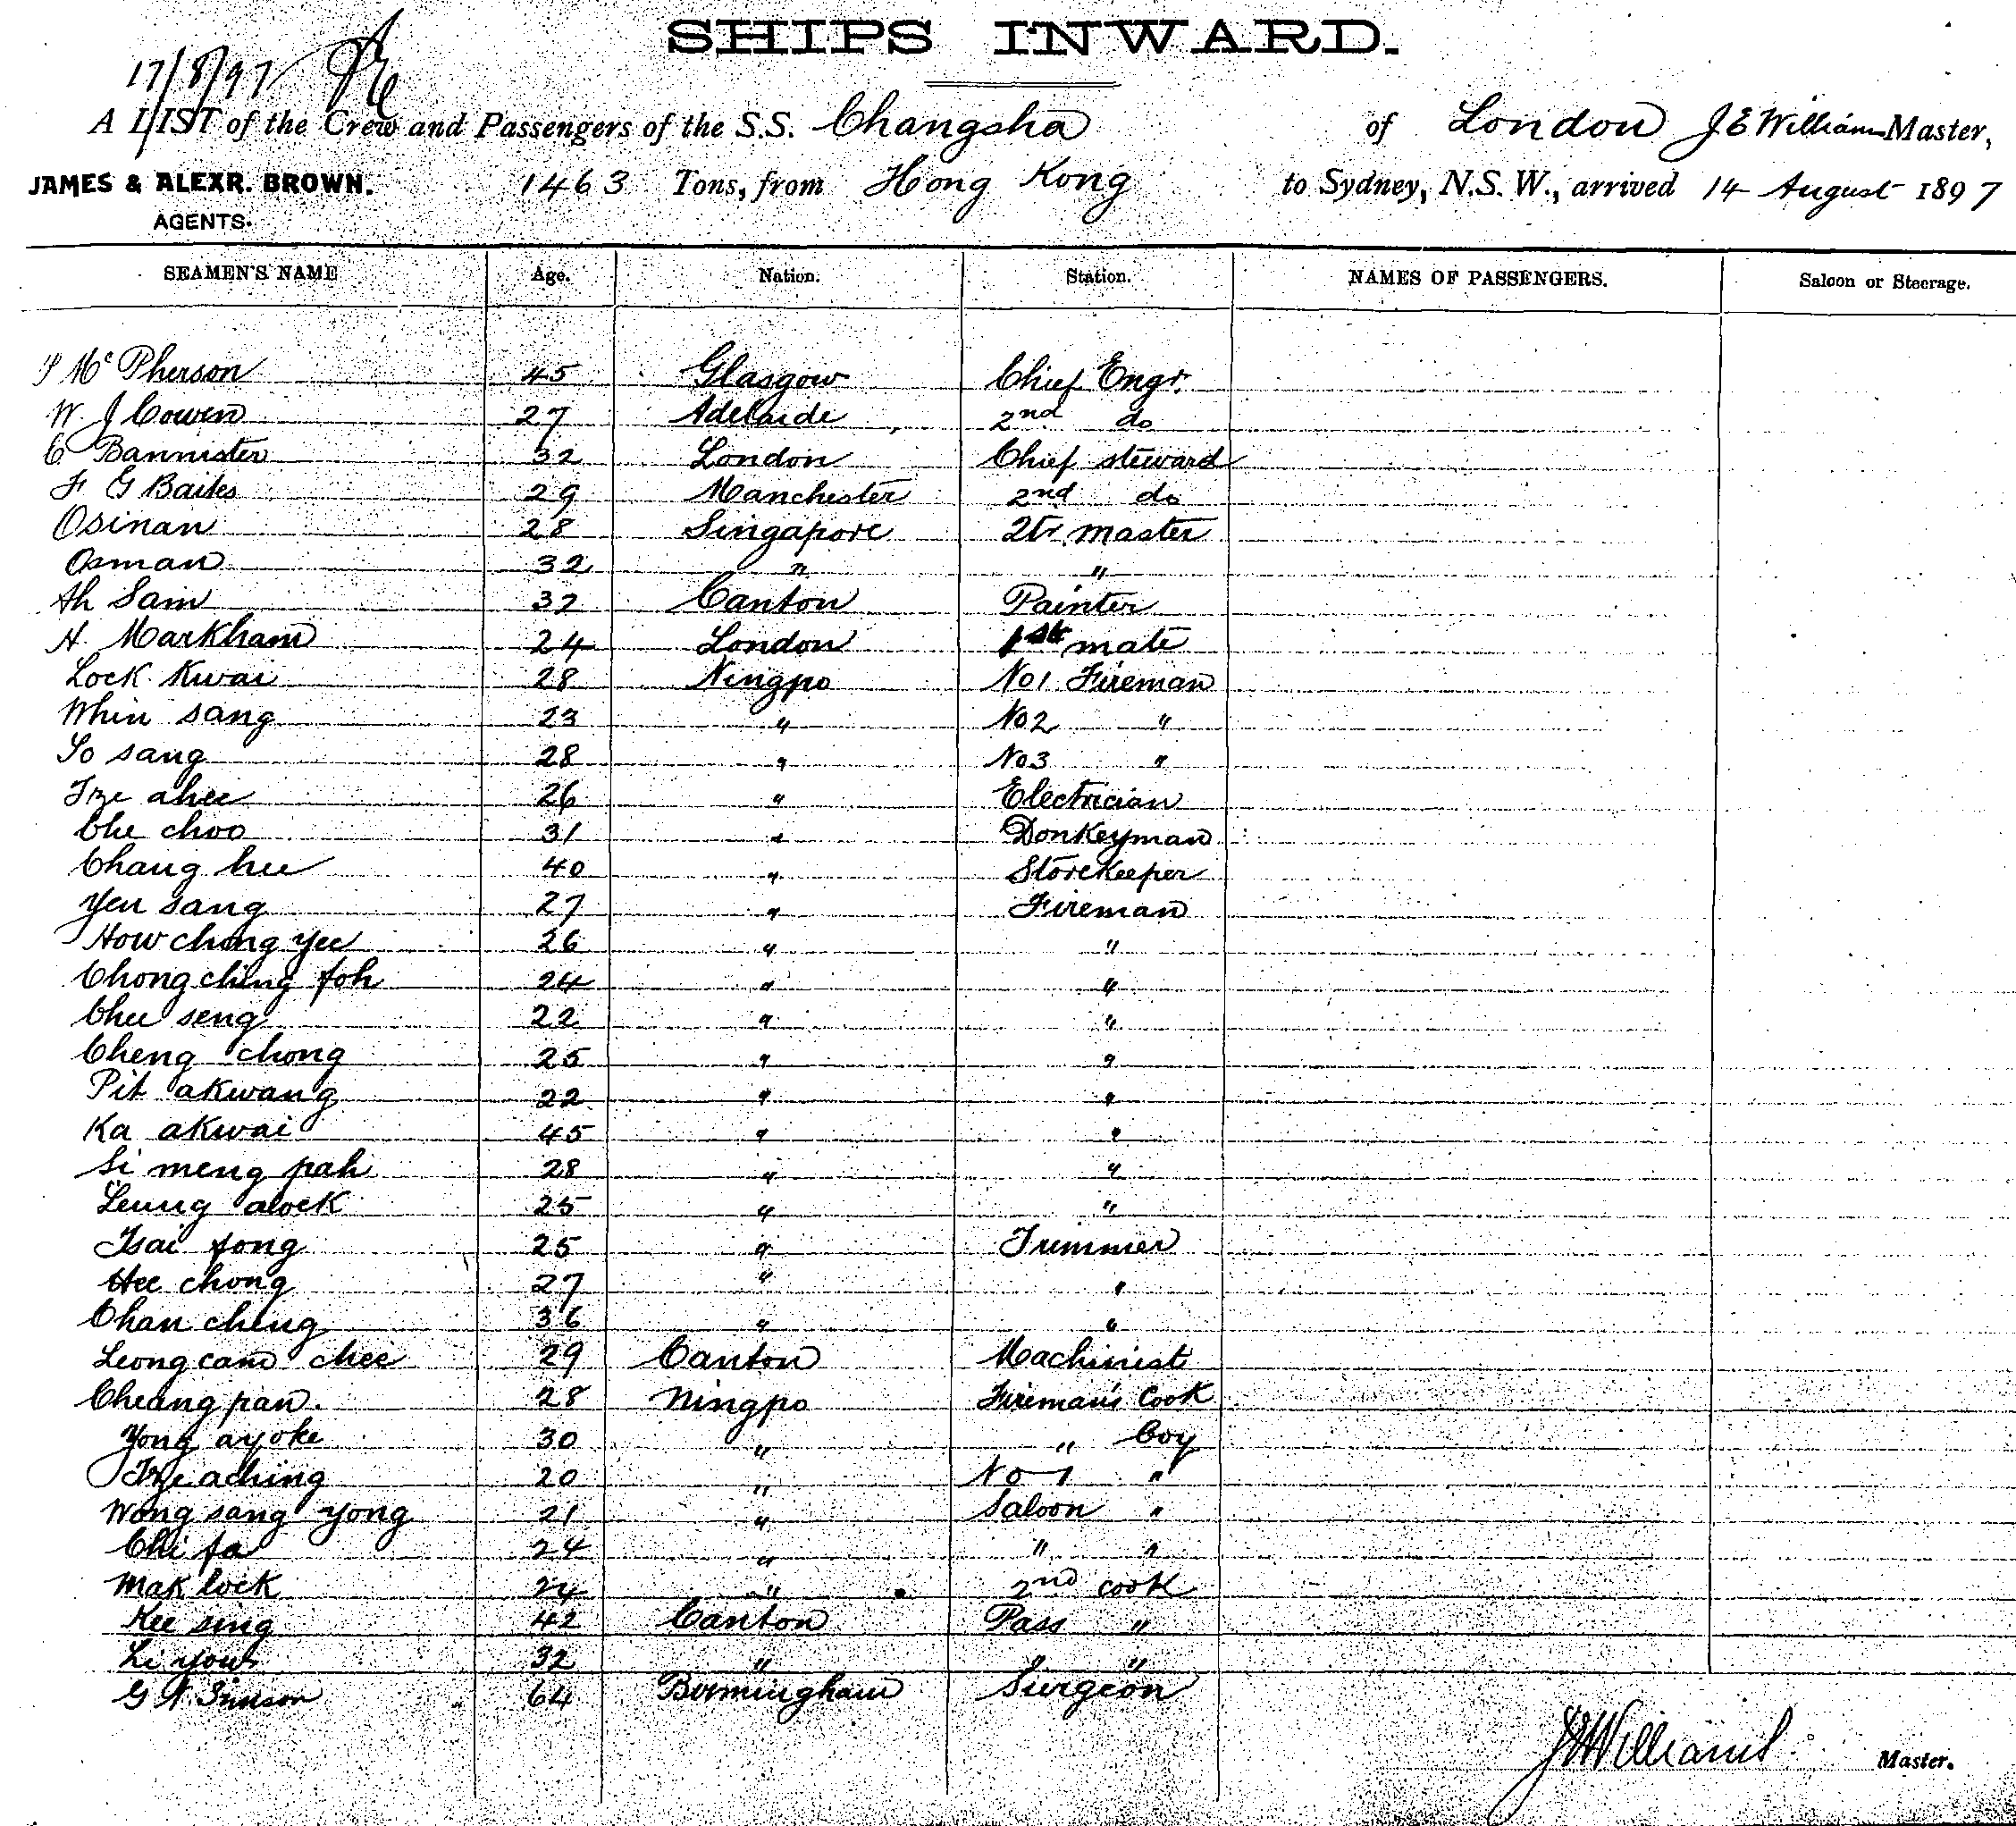 SHIPS INWARD.
17/8/97
A LIST of the Crew and Passengers of the S.S. Changsha of London J E Williams Master,
JAMES & ALEXR. BROWN. 1463 Tons, from Hong Kong to Sydney, N.S.W., arrived 14 August 1897
AGENTS.
SEAMEN'S NAME Age. Nation. Station. NAMES OF PASSENGERS. Saloon or Steerage.
P McPherson 45 Glasgow Chief Engr.
W J Cowen 27 Adelaide 2nd do
C Bannister 32 London Chief steward
F G Bailes 29 Manchester 2nd do
Osinan 28 Singapore 2tr master
Osman 32 " "
Ah Sam 32 Canton Painter
H Markham 24 London 1st mate
Lock Kwai 28 Ningpo No 1 Fireman
Whin sang 23 " No 2 "
So sang 28 " No 3 "
Tze ahee 26 " Electrician
Che choo 31 " Donkeyman
Chang hee 40 " Storekeeper
Yen sang 27 " Fireman
How chong yee 26 " "
Chong ching foh 24 " "
Chee seng 22 " "
Cheng chong 25 " "
Pit akwang 22 " "
Ka akwai 45 " "
Si meng pah 28 " "
Leung alock 25 " "
Tsai fong 25 " Trimmer
Hee chong 27 " "
Chan cheng 36 " "
Leong cam chee 29 Canton Machinist
Cheang pan. 28 Ningpo Fireman's Cook
Yong ayoke 30 " " boy
Tze aching 20 " No 1 "
Wong sang yong 21 " Saloon "
Chi fa 24 " " "
Mak lock 24 " 2nd cook
Kee sing 42 Canton Pass "
Li you 32 " " "
G 64 Birmingham Surgeon
J E Williams Master.